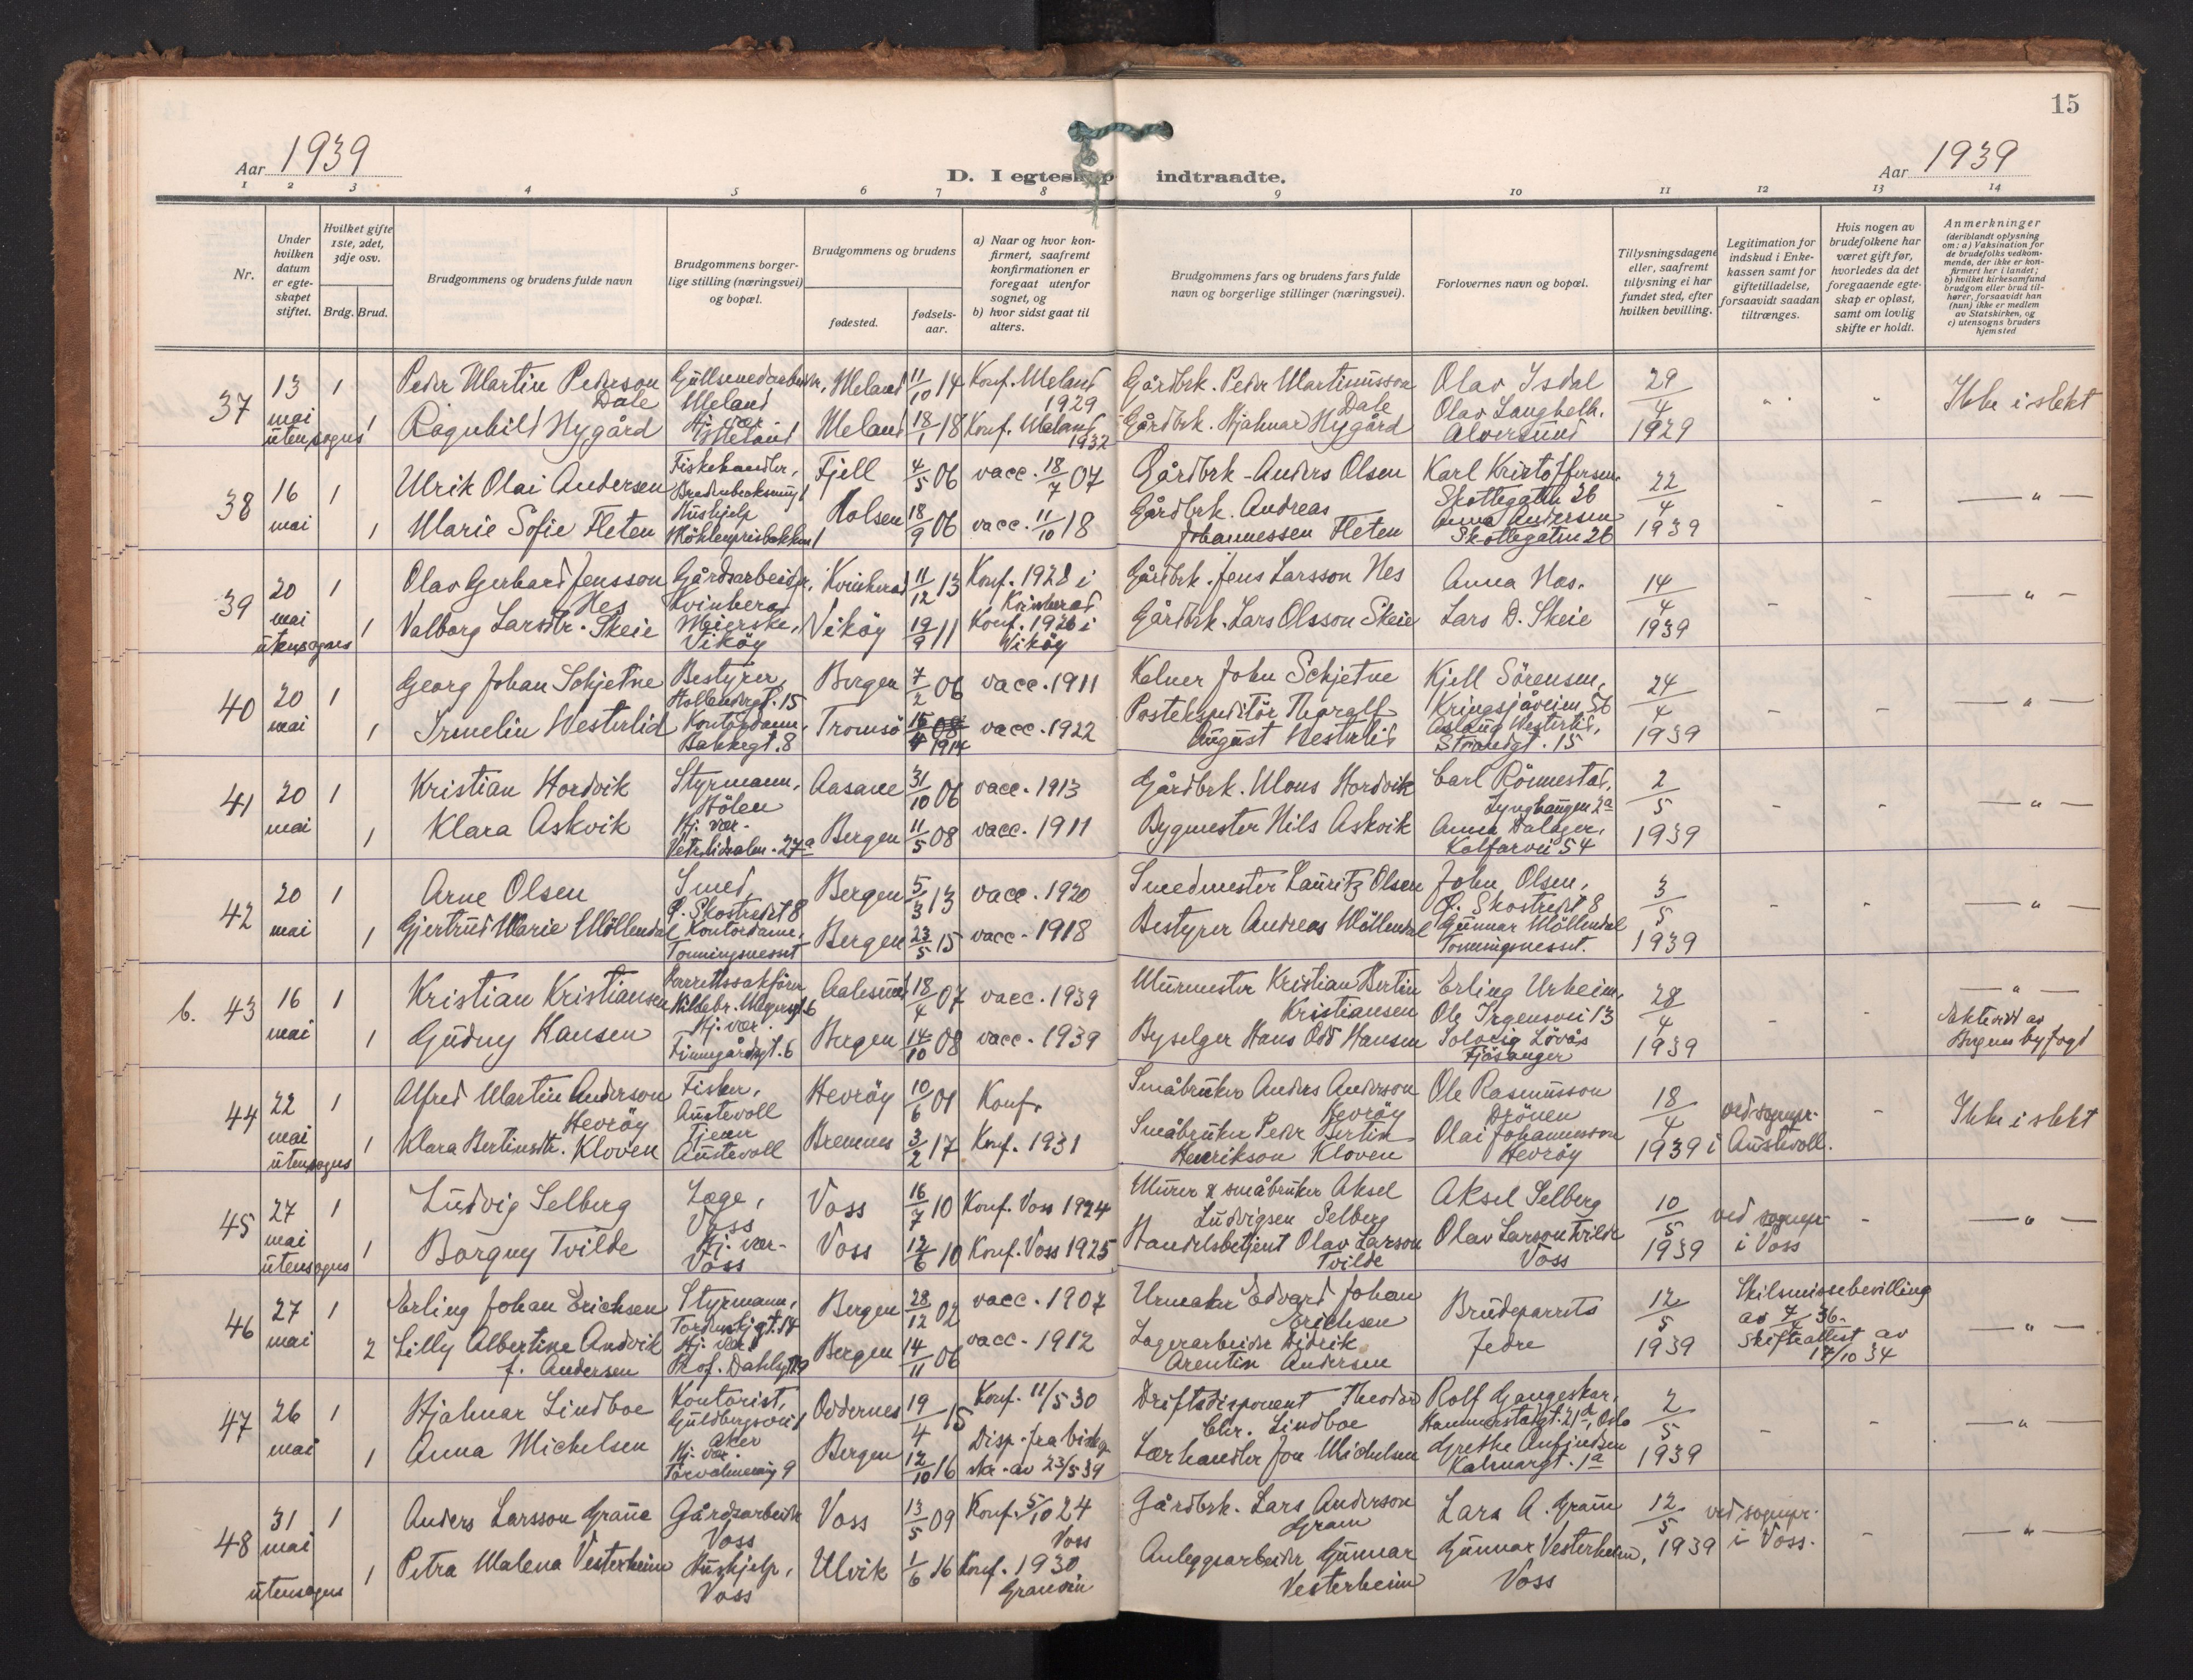 15
Aar 1939
D. I egteskap indtraadte.
Aar 1939
1 2 3 4 5 6 7 8 9 10 11 12 13 14
Nr.
Under hvilken datum er egteskapet stiftet.
Hvilket gifte 1ste, 2det, 3dje osv.
Brdg. Brud.
Brudgommens og brudens fulde navn
Brudgommens borgerlige stilling (næringsvei) og bopæl.
Brudgommens og brudens
fødested.
fødselsaar.
a) Naar og hvor konfirmert, saafremt konfirmationen er foregaat utenfor sognet, og
b) hvor sidst gaat til alters.
Brudgommens fars og brudens fars fulde navn og borgerlige stillinger (næringsvei).
Forlovernes navn og bopæl.
Tillysningsdagene eller, saafremt tillysning ei har fundet sted, efter hvilken bevilling.
Legitimation for indskud i Enkekassen samt for giftetilladelse, forsaavidt saadan tiltrænges.
Hvis nogen av brudefolkene har været gift før, hvorledes da det foregaaende egteskap er opløst, samt om lovlig skifte er holdt.
Anmerkninger
(deriblandt oplysning om: a) Vaksination for de brudefolks vedkommende, der ikke er konfirmert her i landet; b) hvilket kirkesamfund brudgom eller brud tilhører, forsaavidt han (hun) ikke er medlem av Statskirken, og c) utensogns bruders hjemsted
37 13 mai utensogns 1 Peder Martin Pederson Dale Gullsmedarbeider, Meland Meland 11/10 14 Konf. Meland 1929 Gårdbrk. Peder Martinusson Dale Olav Isdal 29/4 1929 " " Ikke i slekt
1 Ragnhild Nygård Hj. vær Meland Meland 18/1 18 Konf. Meland 1932 Gårdbrk. Hjalmar Nygård Olav Langhelle. Alversund
38 16 mai 1 Ulrik Olai Andersen Fiskehandler, Fjell 4/5 06 vacc. 18/7 07 Gårdbrk - Anders Olsen Karl Kristoffersen Skottegaten 26 22/4 1939 - - — " —
1 Marie Sofie Fleten Hushjelp Möhlenprisbakken 1 Holsen 18/9 06 vacc. 11/10 18 Gårdbrk. Andreas Johannessen Fleten Anna Andersen Skottegaten 26
39 20 mai utensogns 1 Olav Gerhard Jensson Nes Gårdsarbeider, Kvinherad Kvinherad 11/12 13 Konf. 1928 i Kvinherad Gårdbrk. Jens Larsson Nes Anna Nes. 14/4 1939 - - — " —
1 Valborg Larsdtr. Skeie Meierske, Viköy Viköy 19/9 11 Konf. 1926 i Viköy Gårdbrk. Lars Olsson Skeie Lars D. Skeie
40 20 mai 1 Georg Johan Schjetne Bestyrer, Hollendergt. 15 Bergen 7/2 06 vacc. 1911 Kelner John Schjetne Kjell Sörensen, Kringsjåveien 56 24/4 1939 - - — " —
1 Irmelin Westerlid Kontordame, Bakkegt. 8 Tromsö 15/4 08 1914 vacc. 1922 Postekspeditör Thoralf August Westerlid Aslaug Westerlid, Strandgt. 15
41 20 mai 1 Kristian Hordvik Styrmann, Hölen Aasane 31/10 06 vacc. 1913 Gårdbrk. Mons Hordvik Carl Rönnestad, Lynghaugen 2a 2/5 1939 - - — " —
1 Klara Askvik Hj. vær. Vetrlidsalm. 27a Bergen 11/5 08 vacc. 1911 Bygmester Nils Askvik Anna Dalager, Kalfarvei 54
42 20 mai 1 Arne Olsen Smed, Ö. Skostredet 8 Bergen 5/3 13 vacc. 1920 Smedmester Lauritz Olsen John Olsen, Ö. Skostredet 8 3/5 1939 - - — " —
1 Gjertrud Marie Möllendal Kontordame, Tonningsnesset Bergen 23/5 15 vacc. 1918 Bestyrer Andreas Möllendal Gunnar Möllendal Tonningsnesset.
b. 43 16 mai 1 Kristian Kristiansen Overrettssakförer Hildebr. Meyersgt. 6 Aalesund 18/4 07 vacc. 1939 Murmester Kristian Bertin Kristiansen Erling Urheim, Ole Irgensvei 13 28/4 1939 - - — " —
1 Gudny Hansen Hj. vær. Finnegårdsgt. 6 Bergen 14/10 08 vacc. 1939 Byselger Hans Odd Hansen Solveig Lövås Fjösanger Ektevidd av Bergens byfogd
44 22 mai utensogns 1 Alfred Martin Anderson Hevröy Fisker, Austevoll Hevröy 10/6 01 Konf. Småbruker Anders Anderson Hevröy Ole Rasmusson Drönen 18/4 1939 ved sognepr. i Austevoll. - Ikke i slekt
1 Klara Bertinsdtr. Kloven Tjener Austevoll Bremnes 3/2 17 Konf. 1931 Småbruker Peder Bertin Henrikson Kloven Olai Johannesson Hevröy
45 27 mai utensogns 1 Ludvig Selberg Læge, Voss Voss 16/7 10 Konf. Voss 1924 Murer & småbruker Aksel Ludvigsen Selberg Aksel Selberg 10/5 1939 ved sognepr. i Voss - — " —
1 Borgny Tvilde Hj. vær. Voss Voss 12/6 10 Konf. Voss 1925 Handelsbetjent Olav Larson Tvilde Olav Larson Tvilde Voss
46 27 mai 1 Erling Johan Erichsen Styrmann, Tordenskj.gt. 14 Bergen 28/12 02 vacc. 1907 Urmaker Edvard Johan Erichsen Brudeparrets fedre 12/5 1939 Skilsmissebevilling av 7/4 36. Skifteattest av 17/10 34 — " —
2 Lilly Albertine Andvik f. Andersen Hj. vær Prof. Dahlsgt. 19 Bergen 14/11 06 vacc. 1912 Lagerarbeider Didrik Arentin Andersen
47 26 mai 1 Hjalmar Lindboe Kontorist, Guldbergsvei 1 Aker Oddernes 19/4 15 Konf. 11/5 30 Driftsdisponent Theodor Chr. Lindboe Rolf Gangeskar, Hammerstadgt. 21d, Oslo 2/5 1939 - - — " —
1 Anna Michelsen Hj. vær. Torvalmenning 9 Bergen 12/10 16 Disp. fra biskop skr. av 23/5 39 Lærhandler Jon Michelsen Grethe Anfindsen Kalmargt. 1a
48 31 mai utensogns 1 Anders Larsson Graue Gårdsarbeider Voss Voss 13/5 09 Konf. 5/10 24 Voss Gårdbrk. Lars Anderson Graue Lars A. Graue 12/5 1939 ved sognepr. i Voss. - — " —
1 Petra Malena Vesterheim Hushjelp, Voss Ulvik 1/6 16 Konf. 1930 Granvin Anleggsarbeider Gunnar Vesterheim Gunnar Vesterheim, Voss